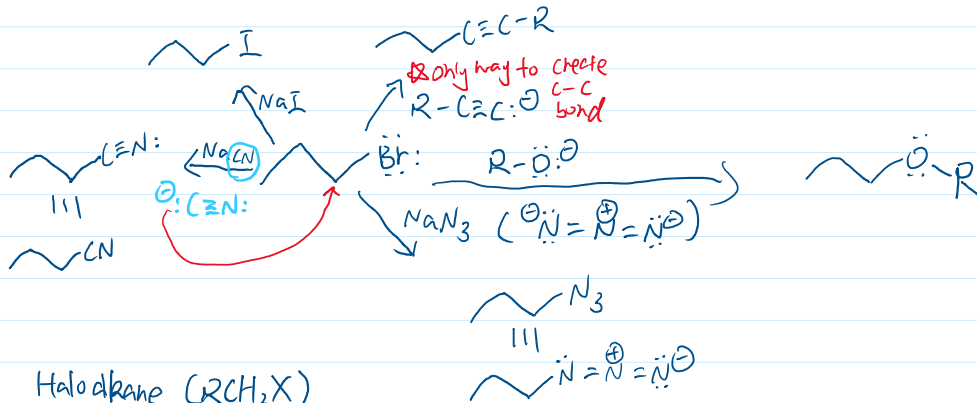 I
C≡C-R
☆ only way to create
C-C
bond
NaI
R-C≡C:⊖
C≡N:
NaCN
Br:
R-Ö:⊖
Ö
R
⊖:C≡N:
NaN₃ (⊖N̈=N⊕=N̈⊖)
CN
N₃
|||
|||
N̈=N⊕=N̈⊖
Haloalkane (RCH₂X)